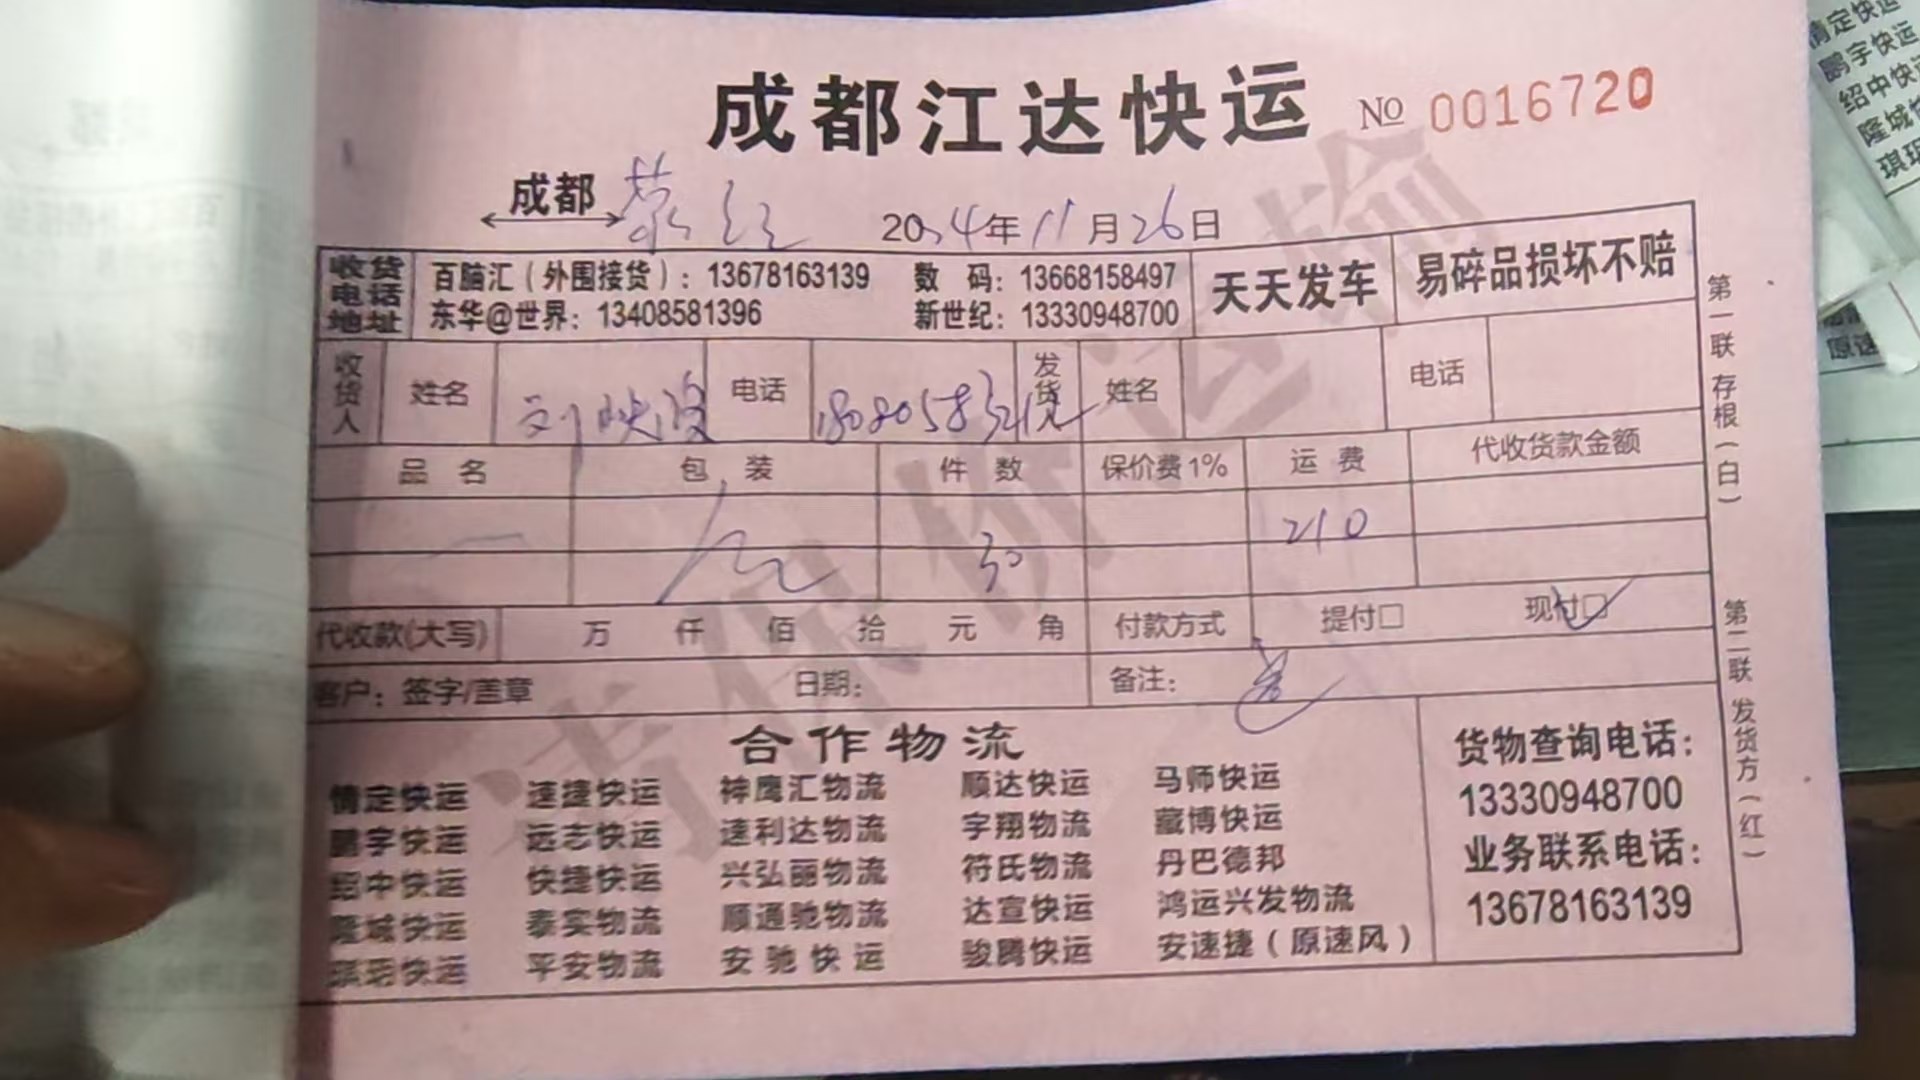 成都江达快运 No 0016720
成都 荥经 2024年11月26日
收货电话地址 百脑汇（外围接货）：13678163139 数 码：13668158497 天天发车 易碎品损坏不赔
东华@世界：13408581396 新世纪：13330948700
收货人 姓名 刘映波 电话 发货人 姓名 电话
品 名 包 装 件 数 保价费1% 运 费 代收货款金额
30 210
代收款(大写) 万 仟 佰 拾 元 角 付款方式 提付□ 现付□
客户：签字/盖章 日期： 备注：
请保价运输
合作物流
情定快运 速捷快运 神鹰汇物流 顺达快运 马师快运
鹏宇快运 远志快运 速利达物流 宇翔物流 藏博快运
绍中快运 快捷快运 兴弘丽物流 符氏物流 丹巴德邦
隆城快运 泰实物流 顺通驰物流 达宣快运 鸿运兴发物流
琪玥快运 平安物流 安驰快运 骏腾快运 安速捷（原速风）
货物查询电话：
13330948700
业务联系电话：
13678163139
第一联 存根（白）
第二联 发货方（红）
情定快运
鹏宇快运
绍中快运
隆城快
琪玥
原速